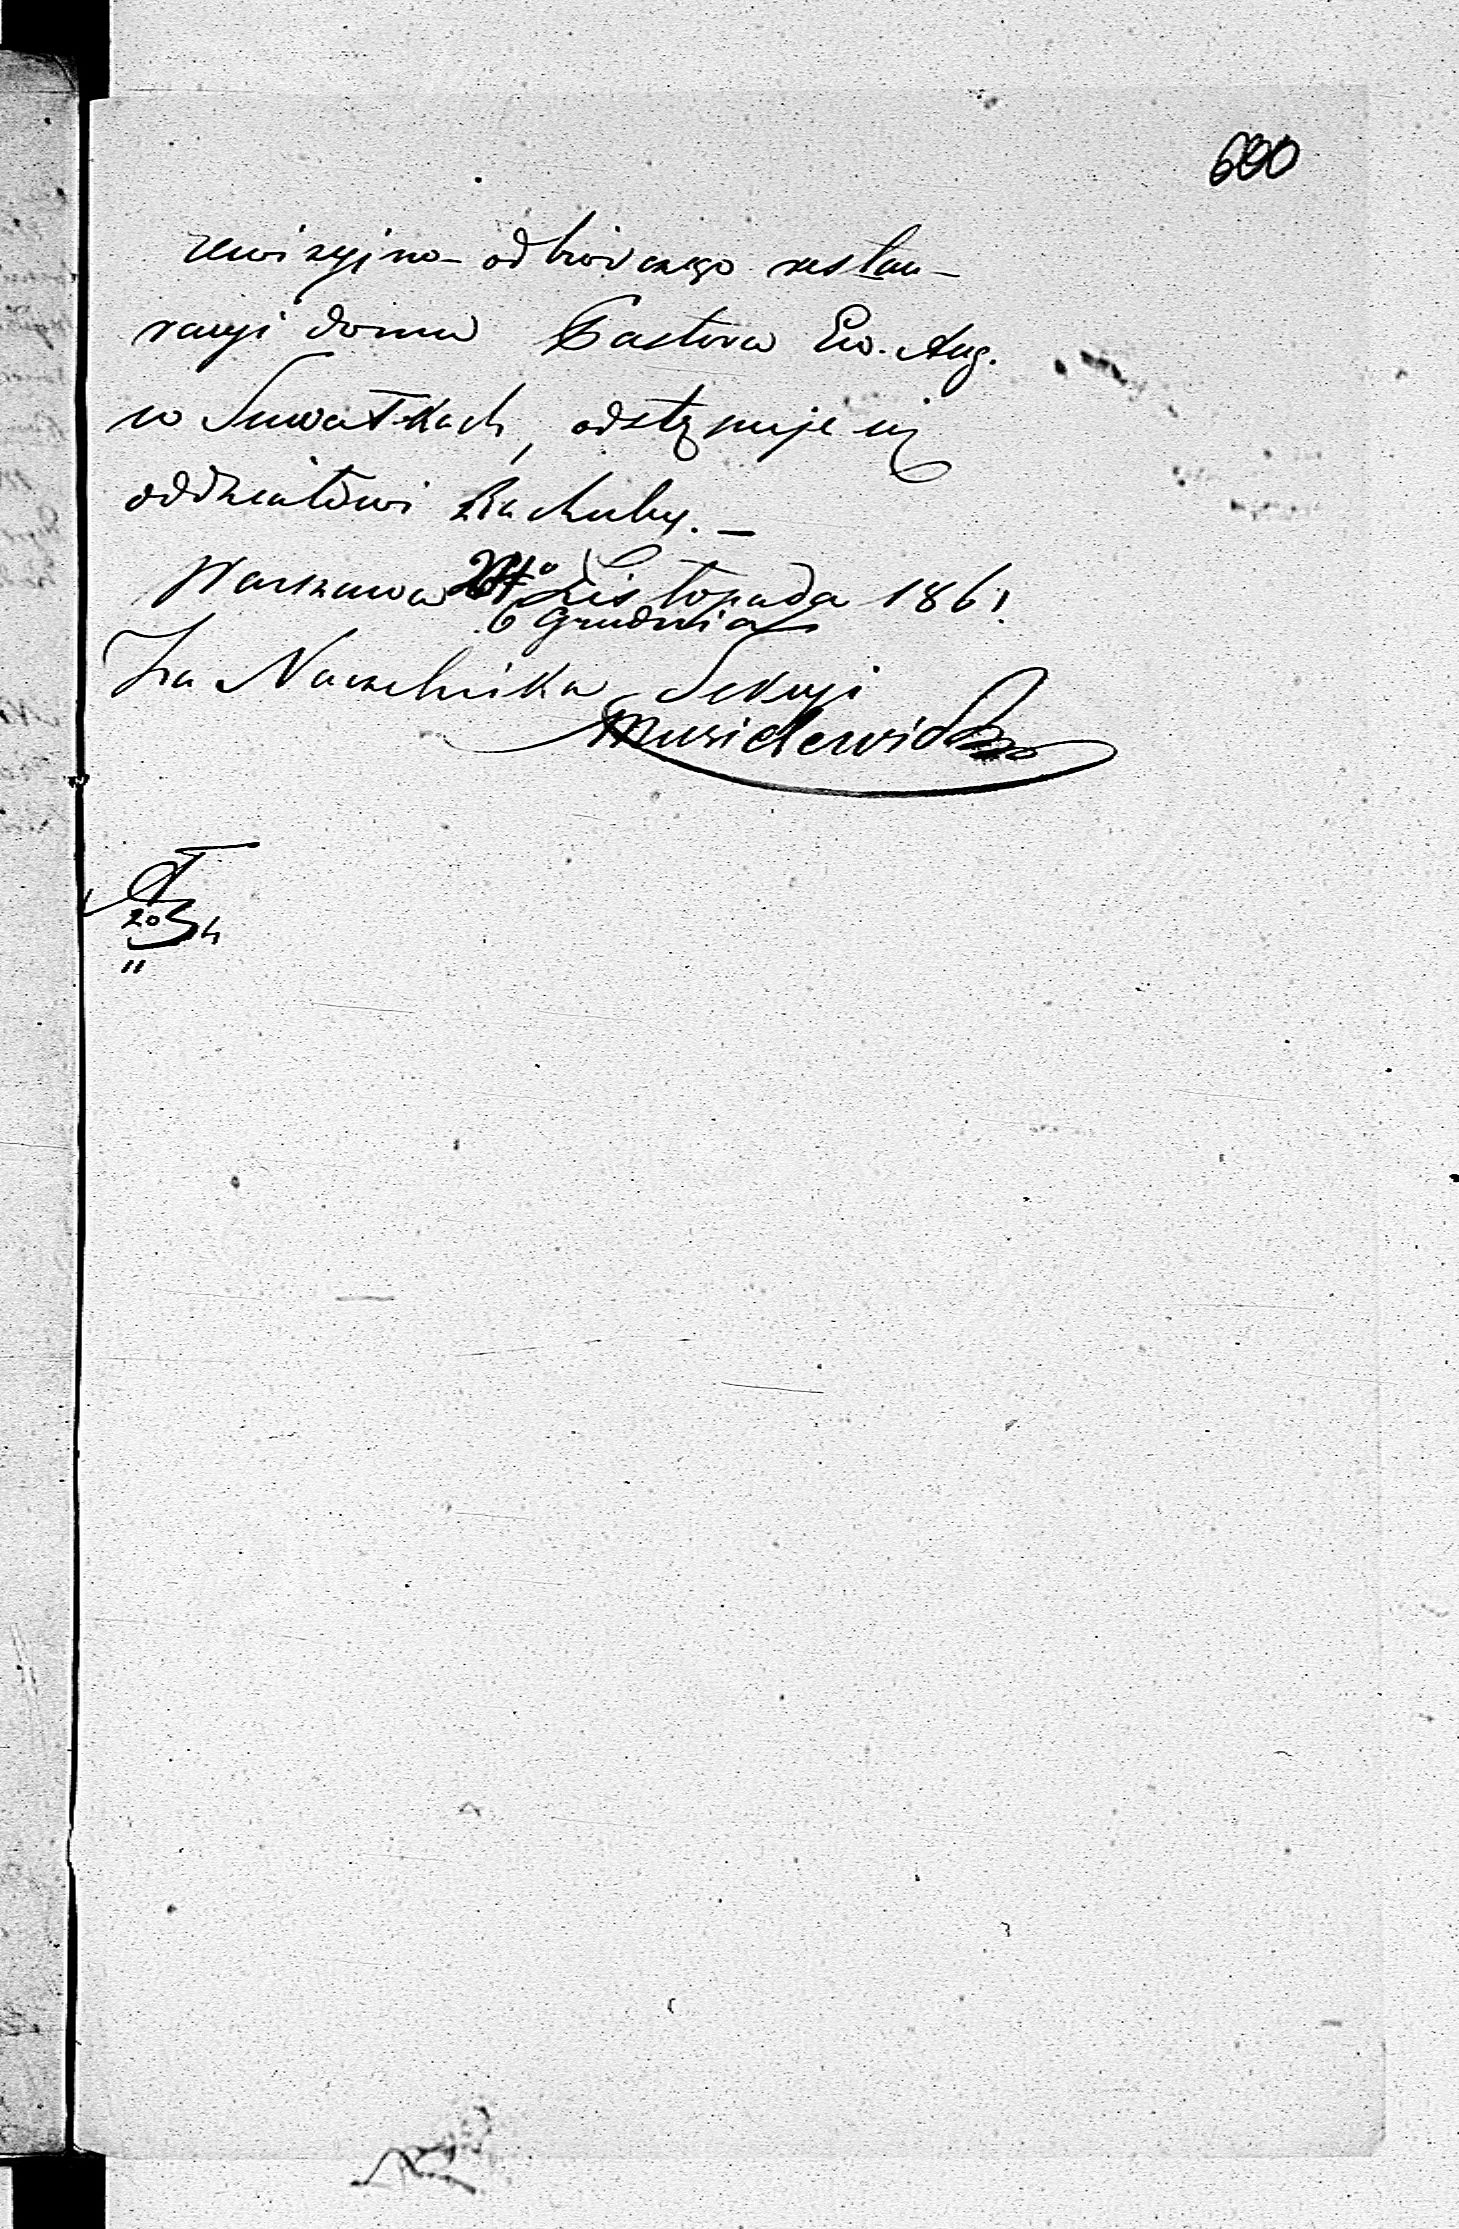 600
rewizyjno-odbiorczego restau-
racyi domu Pastora Ew. Aug.
w Suwałkach, odstępuje się
oddziałowi Rachuby. —
Warszawa 24° Listopada 1861.
6 Grudnia
Za Naczelnika Sekcyi
20
11